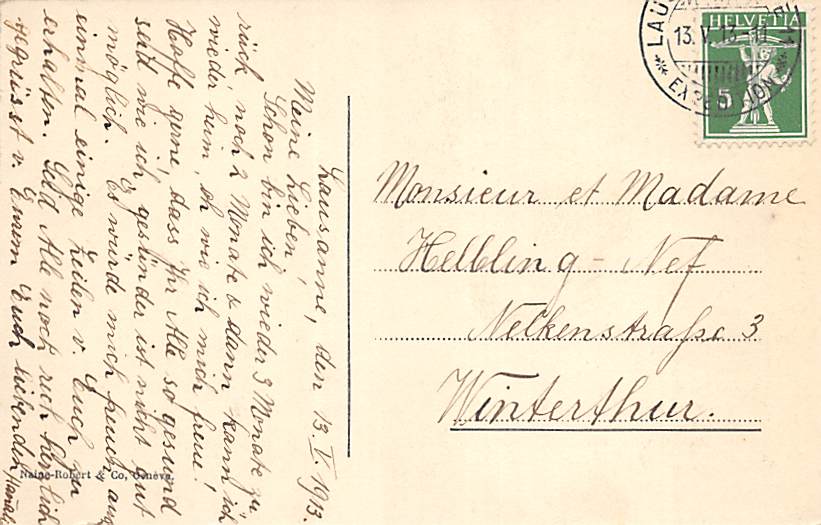 Lausanne, den 13. V. 1913.
Meine Lieben,
Schon bin ich wieder 3 Monate zu
rück, noch 2 Monate & dann kann ich
wieder heim, oh wie ich mich freue!
Hoffe gerne, dass Ihr Alle so gesund
seid wie ich, gesünder ist nicht gut
möglich. Es würde mich freuen auch
einmal einige Zeilen v. Euch zu
erhalten. Seid Alle noch recht herzlich
gegrüsst v. Eurem Euch liebenden
HELVETIA
5
13. V. 13
EXPEDITION
Monsieur et Madame
Helbling - Nef
Nelkenstraße 3
Winterthur.
Naine-Robert & Co, Genève.